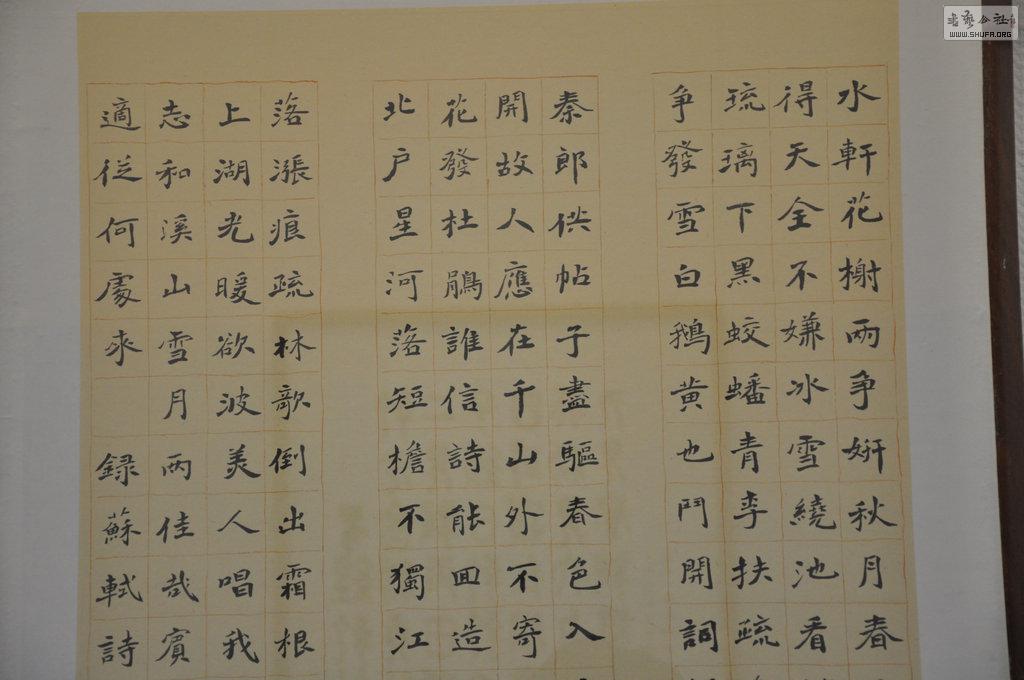 水軒花榭兩争妍秋月春
得天全不嫌冰雪繞池看
琉璃下黑蛟蟠青李扶疏
争發雪白鵝黄也鬥開詞
秦郎供帖子盡驅春色入
開故人應在千山外不寄
花發杜鵑誰信詩能囬造
北户星河落短檐不獨江
落漲痕疏林欹倒出霜根
上湖光暖欲波美人唱我
志和溪山雪月兩佳哉賓
適從何處來 録蘇軾詩
書藝公社
WWW.SHUFA.ORG